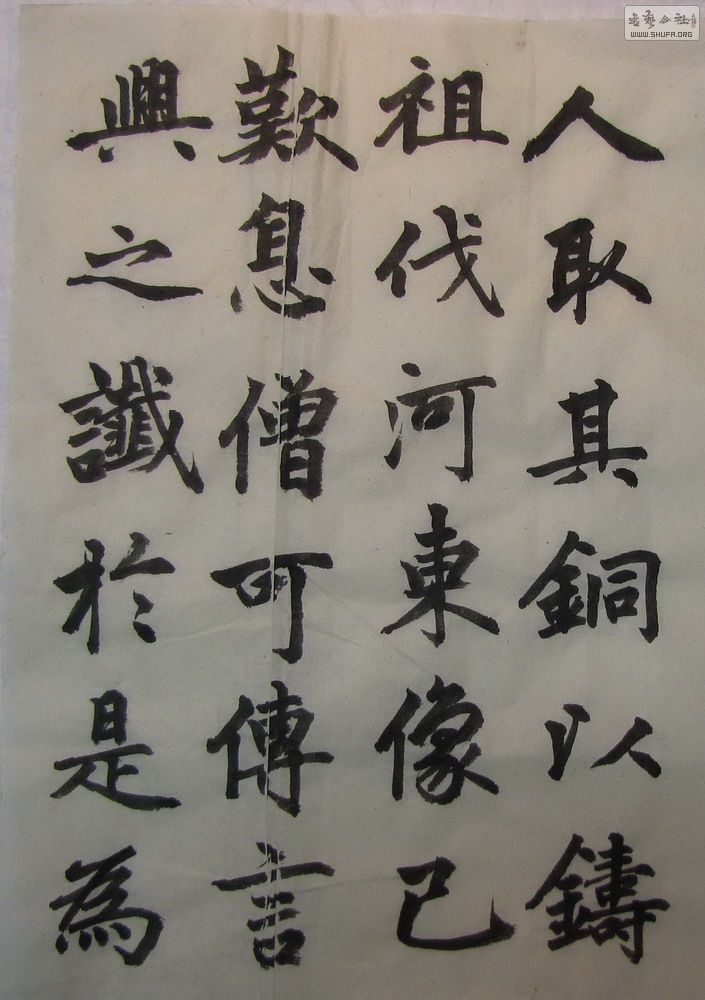 人取其銅以鑄
祖伐河東像已
歎息僧可傳言
興之讖於是為
書藝公社
WWW.SHUFA.ORG